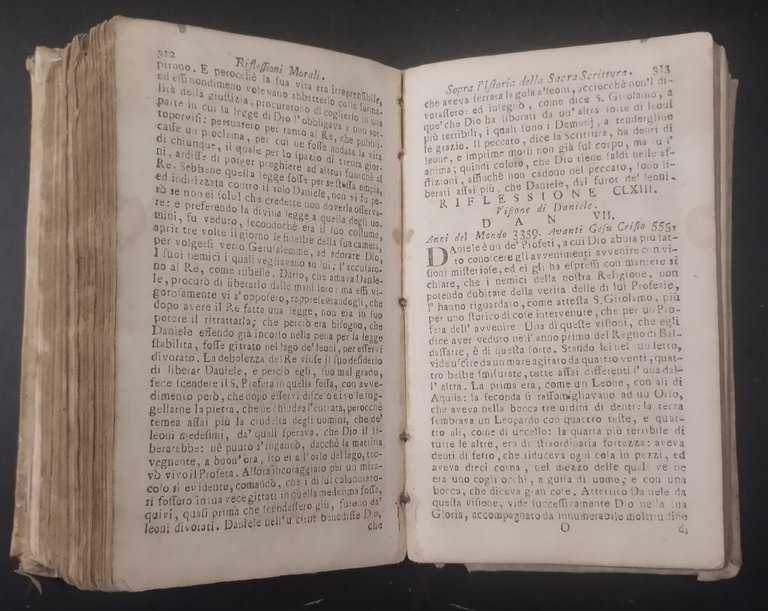 312
Riflessioni Morali.
pirono. E perocchè la sua vita era irreprensibile,
ed essi nondimeno volevano abbatterlo colle forma-
lità della giustizia, procurarono di coglierlo in una
parte in cui la legge di Dio l'obbligava a non sot-
toporvisi: persuasero per tanto al Re, che pubbli-
casse un proclama, per cui ne fosse andata la vita
di chiunque, il quale per lo spazio di trenta gior-
ni, ardisse di porger preghiere ad altri fuorchè al
Re. Sebbene quella legge fosse per se stessa empia,
ed indirizzata contro il solo Daniele, non vi fu pe-
rò se non ei solo! che credette non doversi osserva-
re: e preferendo la divina legge a quella degli uo-
mini, fu veduto, secondochè era il suo costume,
aprir tre volte il giorno le finestre della sua camera,
per volgersi verso Gerusalemme, ad adorare Dio.
I suoi nemici i quali vegliavano su lui, l'accusaro-
no al Re, come rubelle. Dario, che amava Danie-
le, procurò di liberarlo dalle mani loro: ma essi vi-
gorosamente vi s'opposero, rappresentandogli, che
dopo avere il Re fatta una legge, non era in suo
potere il ritrattarla; che perciò era bisogno, che
Daniele essendo già incorso nella pena per la legge
stabilita, fosse gittato nel lago de' leoni, per esservi
divorato. La debolezza del Re vinse il suo desiderio
di liberar Daniele, e perciò egli, suo mal grado,
fece scendere il S. Profeta in quella fossa, con avve-
dimento però, che dopo esservi disceso ei vo le sug-
gellarne la pietra, che ne chiudea l'entrata, perocchè
temea assai più la crudeltà degli uomini, che de'
leoni medesimi, da' quali sperava, che Dio il li-
berarebbe: nè punto s'ingannò, dacchè la mattina
vegnente, a buon'ora, ito ei all'orlo del lago, tro-
vò vivo il Profeta. Allora incoraggiato per un mira-
colo sì evidente, comandò, che i di lui calunniato-
ri fossero in sua vece gittati in quella medesima fossa,
quivi, quasi prima che scendessero giù, furono da'
leoni divorati. Daniele nell'uscirne benedisse Dio,
che
Sopra l'Istoria della Sacra Scrittura. 313
che aveva serrata la gola a' leoni, acciocchè non'l di-
vorassero: ed insegnò, come dice S. Girolamo, a
que' che Dio ha liberati da un' altra sorte di leoni
più terribili, i quali sono i Demonj, a rendergline
le grazie. Il peccato, dice la Scrittura, ha denti di
leone, e imprime morsi non già sul corpo, ma su l'
anima; quindi coloro, che Dio tiene saldi nelle af-
flizioni, affinchè non cadono nel peccato, sono li-
berati assai più, che Daniele, dal furor de' leoni.
RIFLESSIONE CLXIII.
Visione di Daniele.
DAN VII.
Anni del Mondo 3359. Avanti Gesu Cristo 555,
DAniele è un de' Profeti, a cui Dio abbia più fat-
to conoscere gli avvenimenti avvenire con vi-
sioni misteriose, ed ei gli ha espressi con maniere sì
chiare, che i nemici della nostra Religione, non
potendo dubitare della verità delle di lui Profezie,
l'hanno riguardato, come attesta S. Girolamo, più
per uno storico di cose intervenute, che per un Pro-
feta dell' avvenire. Una di queste visioni, che egli
dice aver veduto nell' anno primo del Regno di Bal-
dassarre, è di questa sorte. Stando lei nel suo letto,
vide uscire da un mare agitato da quattro venti, quat-
tro bestie smisurate, tutte assai differenti l' una dal-
l' altra. La prima era, come un Leone, con ali di
Aquila: la seconda si rassomigliava ad un Orso,
che aveva nella bocca tre ordini di denti: la terza
sembrava un Leopardo con quattro teste, e quat-
tro ali, come di uccello: la quarta più terribile di
tutte le altre, era di straordinaria fortezza: aveva
denti di ferro, che riduceva ogni cosa in pezzi, ed
aveva dieci corna, nel mezzo delle quali ve ne
era uno cogli occhi, a guisa di uomo; e con una
bocca, che diceva gran cose. Atterrito Daniele da
questa visione, vide successivamente Dio nella sua
Gloria, accompagnato da innumerabile moltitudine
O di